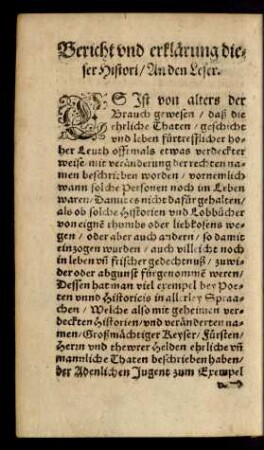 Bericht vnd erklärung die-
ser Histori / An den Leser.
ES Ist von alters der
Brauch gewesen / daß die
ehrliche Thaten / geschicht
vnd leben fürtrefflicher ho-
her Leuth offtmals etwas verdeckter
weise / mit veränderung der rechten na-
men beschriben worden / vornemlich
wann solche Personen noch im Leben
waren / Damit es nicht dafür gehalten /
als ob solche Historien vnd Lobbücher
von eignē rhumbs oder liebkosens we-
gen / oder aber auch andern / so damit
einzogen wurden / auch villeicht noch
in leben vñ frischer gedechtnuß / zuwi-
der oder abgunst fürgenommē weren /
Dessen hat man viel exempel bey Poe-
ten vnnd Historicis in allerley Spraa-
chen / Welche also mit geheimen ver-
deckten Historien / vnd veränderten na-
men / Großmächtiger Keyser / Fürsten /
Herrn vnd thewrer Helden ehrliche vñ
mannliche Thaten beschrieben haben /
der Adenlichen Jugent zum Exempel